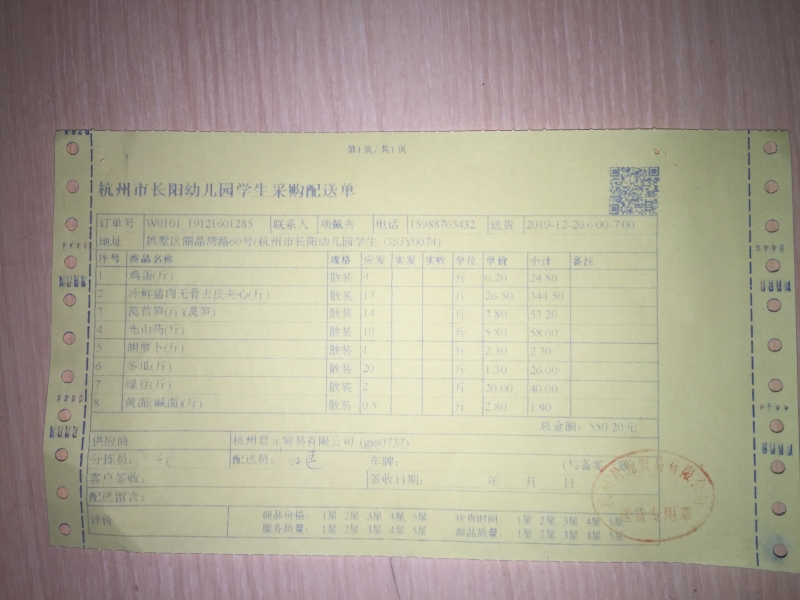 第1页/共1页
杭州市长阳幼儿园学生采购配送单
订单号 W0101 19121601285 联系人 项佩秀 电话 15988765432 送货 2019-12-20 6:00-7:00
地址 拱墅区丽晶湾路60号(杭州市长阳幼儿园学生 GSJY0074)
序号 商品名称 规格 应发 实发 实收 单位 单价 小计 备注
1 鸡蛋(斤) 散装 4 斤 6.20 24.80
2 冷鲜猪肉无骨去皮夹心(斤) 散装 13 斤 26.50 344.50
3 莴苣笋(斤)(莴笋) 散装 14 斤 3.80 53.20
4 光山药(斤) 散装 10 斤 5.80 58.00
5 胡萝卜(斤) 散装 1 斤 2.30 2.30
6 冬瓜(斤) 散装 20 斤 1.30 26.00
7 绿豆(斤) 散装 2 斤 20.00 40.00
8 黄面(碱面)(斤) 散装 0.5 斤 2.80 1.40
总金额: 550.20元
供应商 杭州君元贸易有限公司 (gys0737)
分拣员: 配送员: 车牌:
客户签收: 签收日期: 年 月 日
配送留言:
送货专用章
评价 商品价格: 1星 2星 3星 4星 5星 送货时间: 1星 2星 3星 4星 5星
服务质量: 1星 2星 3星 4星 5星 商品质量: 1星 2星 3星 4星 5星